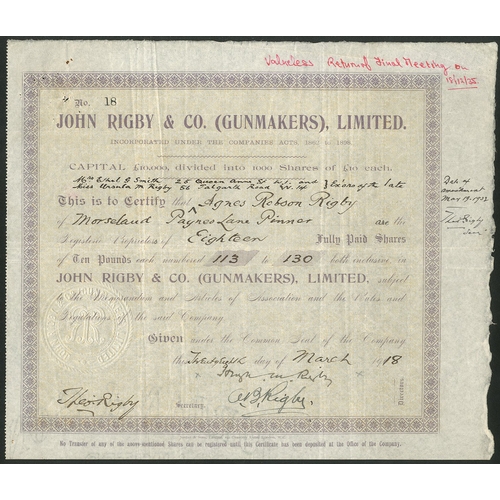 Valueless Return of Final Meeting on
No. 18
JOHN RIGBY & CO. (GUNMAKERS), LIMITED.
INCORPORATED UNDER THE COMPANIES ACTS, 1862 to 1898.
CAPITAL £10,000, divided into 1000 Shares of £10 each.
Mrs Ethel G Smith 25 Queen Anne St W.1. and
Miss Urania M Rigby 56 Talgarth Road W. 14 Exiors of the late
This is to Certify that Agnes Robson Rigby
of Morseland Paynes Lane Pinner are the
Registered Proprietors of Eighteen Fully Paid Shares
of Ten Pounds each numbered 113 to 130 both inclusive in
JOHN RIGBY & CO. (GUNMAKERS), LIMITED, subject
to the Memorandum and Articles of Association and the Rules and
Regulations of the said Company.
Given under the Common Seal of the Company
the day of March 1918
Theo Rigby
Secretary.
Directors.
No Transfer of any of the above-mentioned Shares can be registered until this Certificate has been deposited at the Office of the Company.
May 19 1932
Theo Rigby